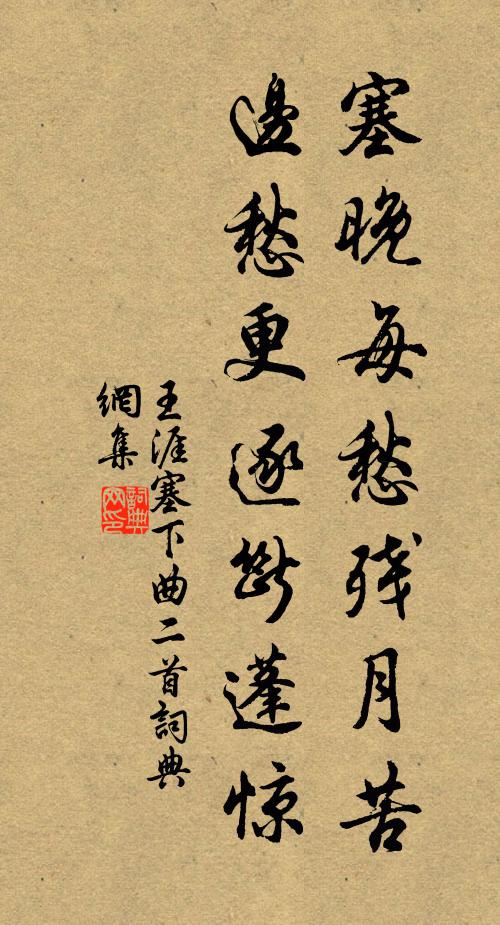 塞晚每愁殘月苦
邊愁更逐斷蓬惊
王涯塞下曲二首詞典
網集
詞典
网印